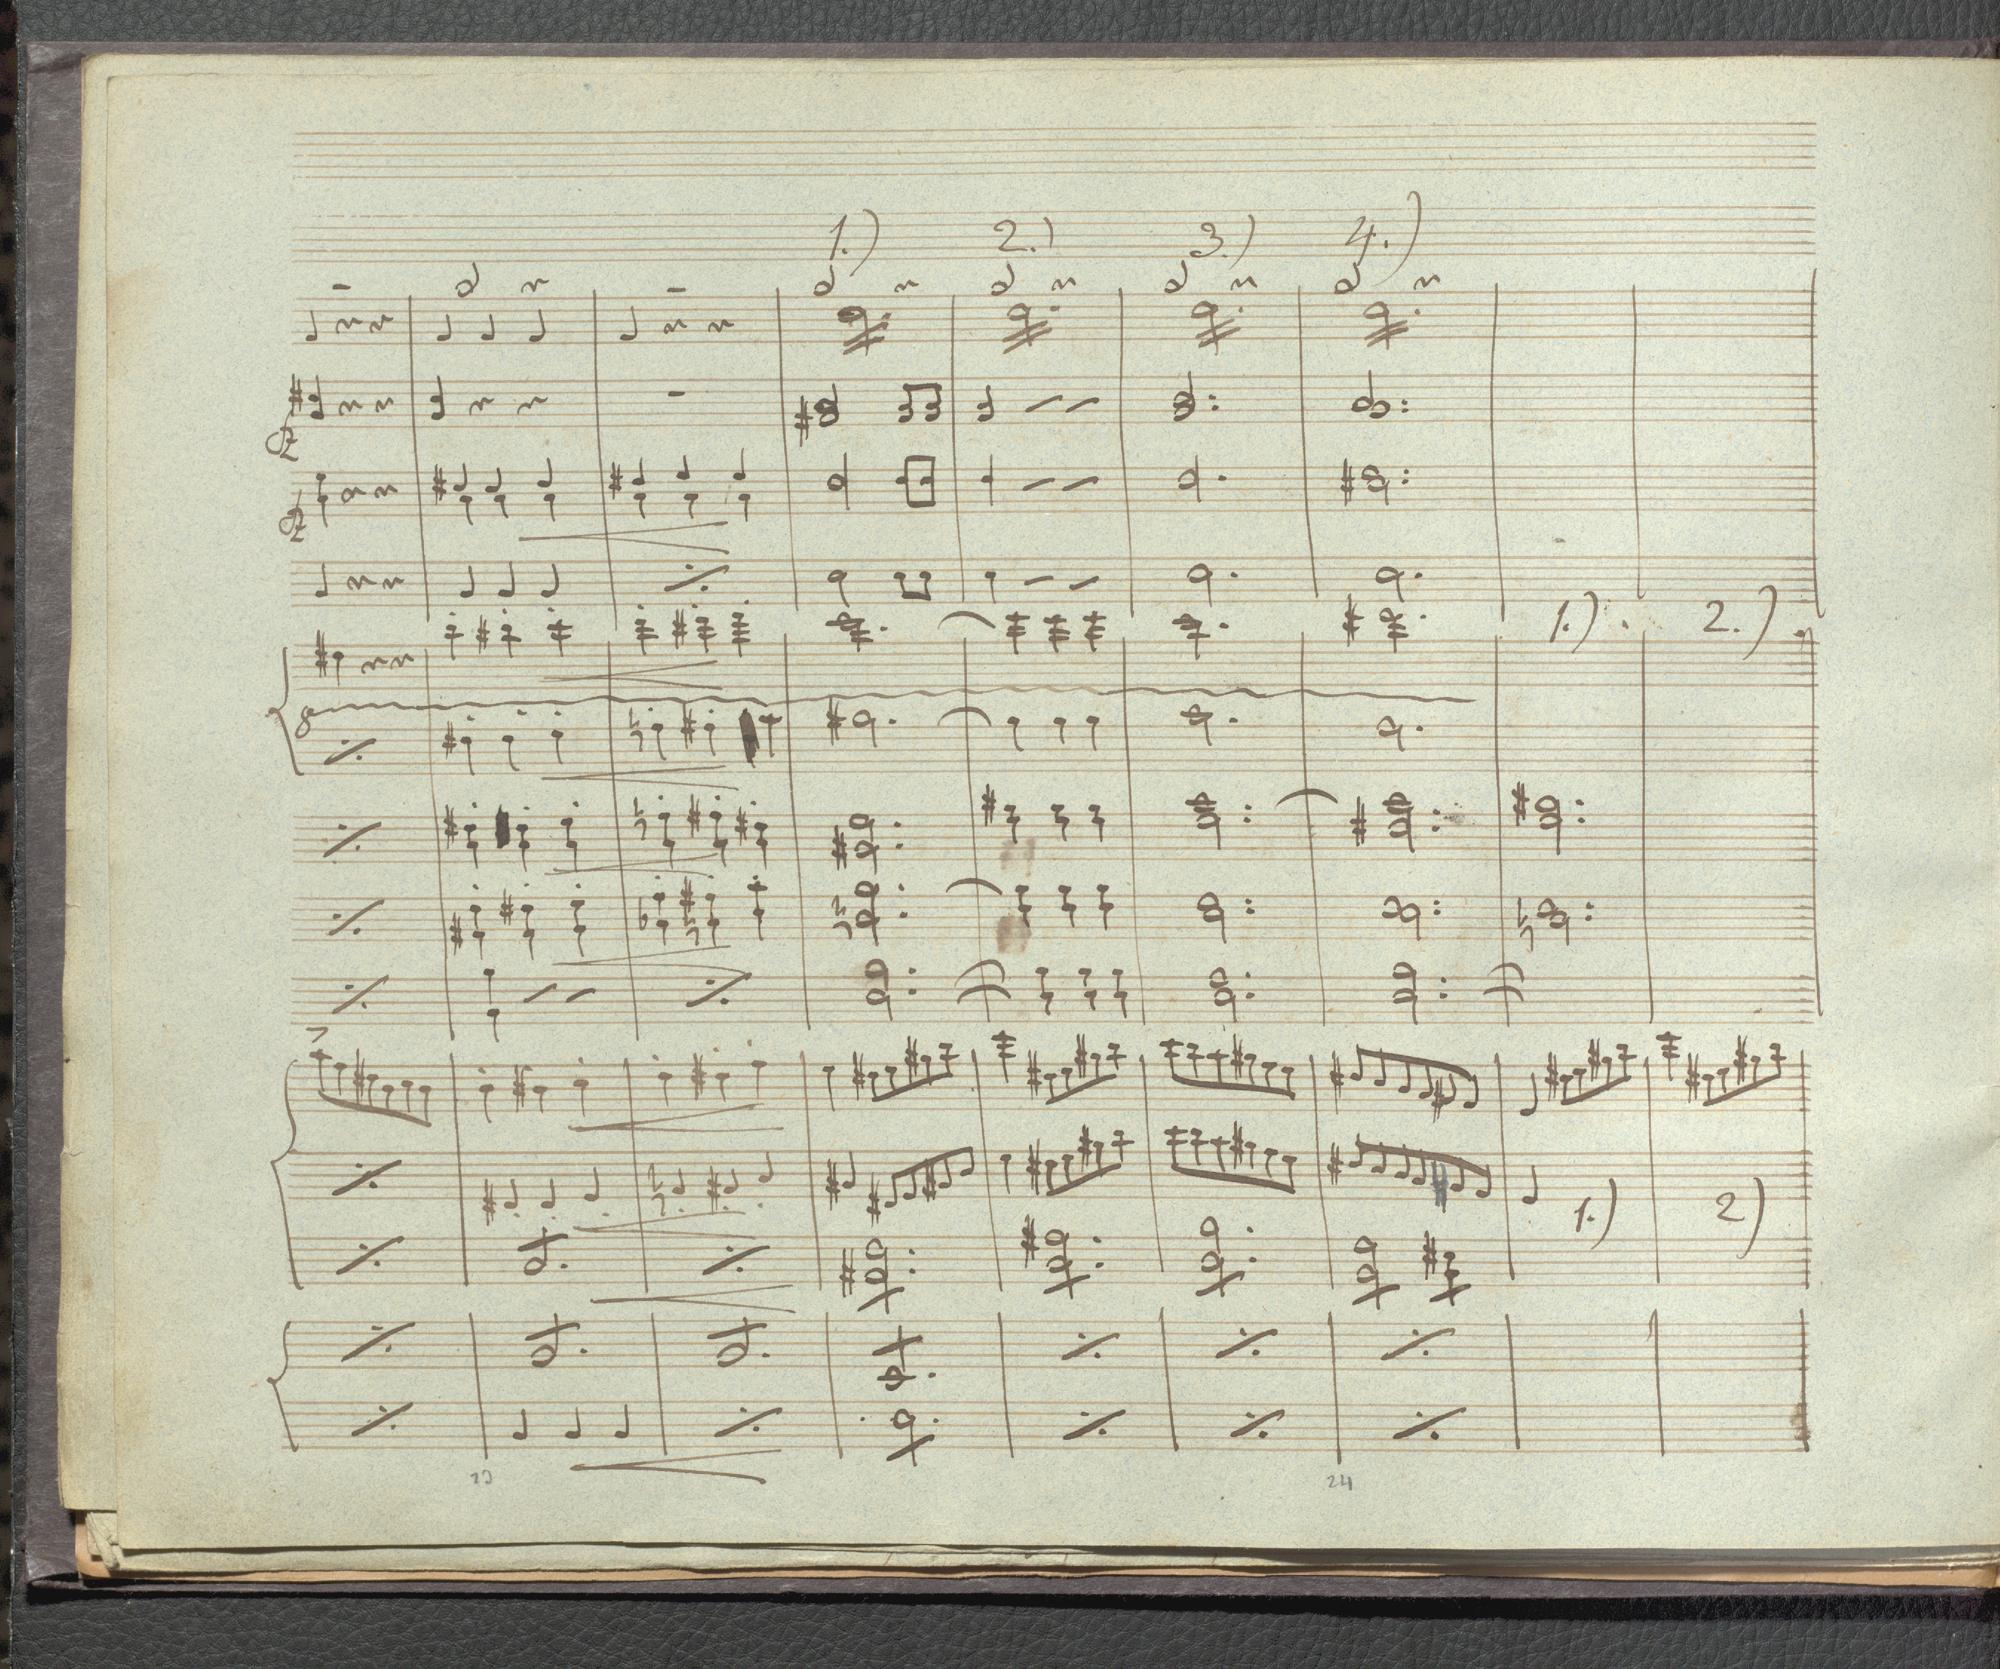 1.) 2.) 3.) 4.)
1.) 2.)
8
1.) 2)
23 24